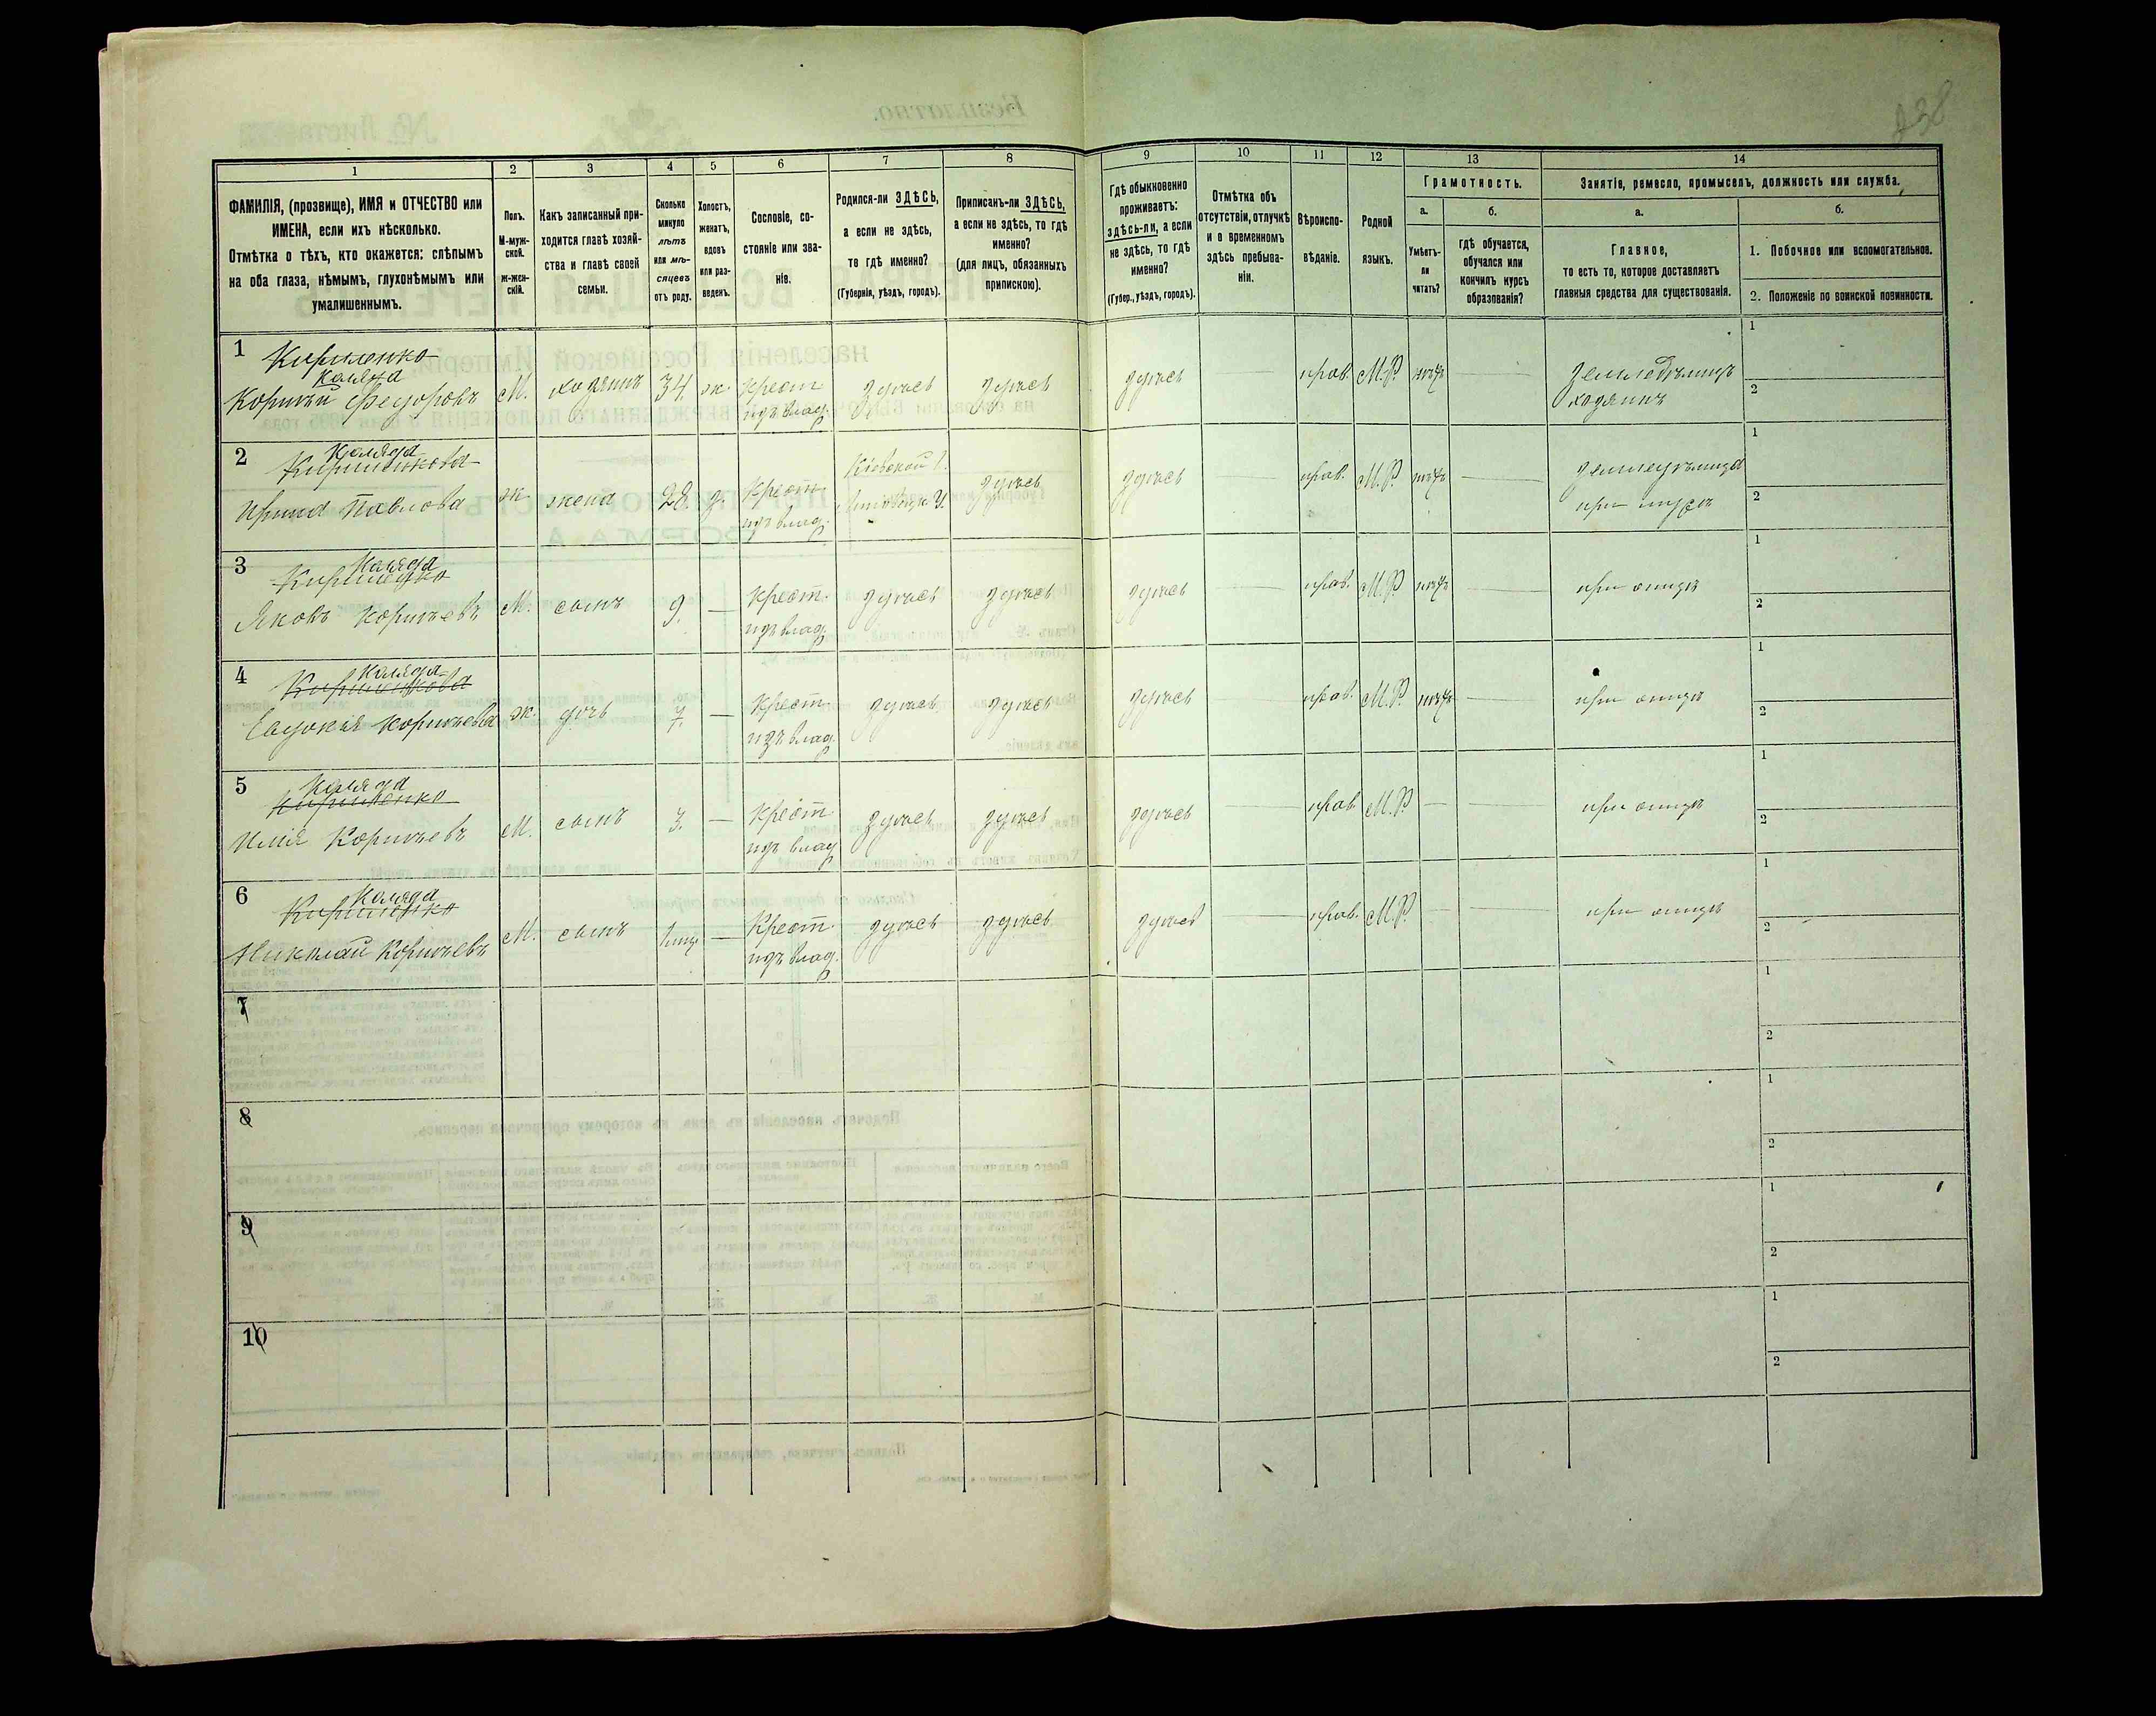 238
1
2
3
4
5
6
7
8
9
10
11
12
13
14
ФАМИЛІЯ, (прозвище), ИМЯ и ОТЧЕСТВО или
ИМЕНА, если ихъ нѣсколько.
Отмѣтка о тѣхъ, кто окажется: слѣпымъ
на оба глаза, нѣмымъ, глухонѣмымъ или
умалишеннымъ.
Полъ.
М-муж-
ской.
ж-жен-
скій.
Какъ записанный при-
ходится главѣ хозяй-
ства и главѣ своей
семьи.
Сколько
минуло
лѣтъ
или мѣ-
сяцевъ
отъ роду.
Холостъ,
женатъ,
вдовъ
или раз-
веденъ.
Сословіе, со-
стояніе или зва-
ніе.
Родился-ли ЗДѢСЬ,
а если не здѣсь,
то гдѣ именно?
(Губернія, уѣздъ, городъ).
Приписанъ-ли ЗДѢСЬ,
а если не здѣсь, то гдѣ
именно?
(для лицъ, обязанныхъ
припискою).
Гдѣ обыкновенно
проживаетъ:
здѣсь-ли, а если
не здѣсь, то гдѣ
именно?
(Губер., уѣздъ, городъ).
Отмѣтка объ
отсутствіи, отлучкѣ
и о временномъ
здѣсь пребыва-
ніи.
Вѣроиспо-
вѣданіе.
Родной
языкъ.
Грамотность.
а.
Умѣетъ-
ли
читать?
б.
гдѣ обучается,
обучался или
кончилъ курсъ
образованія?
Занятіе, ремесло, промыселъ, должность или служба.
а.
Главное,
то есть то, которое доставляетъ
главныя средства для существованія.
б.
1. Побочное или вспомогательное.
2. Положеніе по воинской повинности.
1
Кириленко
Коляда
Корнѣй Федоровъ М. хозяинъ 34. ж. крест. изъ влад. здѣсь здѣсь здѣсь прав. М.Р. нѣтъ земледѣлецъ
хозяинъ
1
2
2
Коляда
Кириленкова
Ирина Павлова ж. жена 28 з. крест. изъ влад. Кіевской Г. Липовецк. У. здѣсь здѣсь прав. М.Р. нѣтъ
при мужѣ
1
2
3
Коляда
Кириленко
Яковъ Корнѣевъ М. сынъ 9. — крест. изъ влад. здѣсь здѣсь здѣсь прав. М.Р. нѣтъ при отцѣ
1
2
4
Коляда
Кириленкова
Евдокія Корнѣева ж. дочь 7. — крест. изъ влад. здѣсь здѣсь здѣсь прав. М.Р. нѣтъ при отцѣ
1
2
5
Коляда
Кириленко
Илія Корнѣевъ М. сынъ 3. — крест. изъ влад. здѣсь здѣсь здѣсь прав. М.Р. — при отцѣ
1
2
6
Коляда
Кириленко
Николай Корнѣевъ М. сынъ — Крест. изъ влад. здѣсь здѣсь здѣсь прав. М.Р. — при отцѣ
1
2
7
1
2
8
1
2
9
1
2
10
1
2